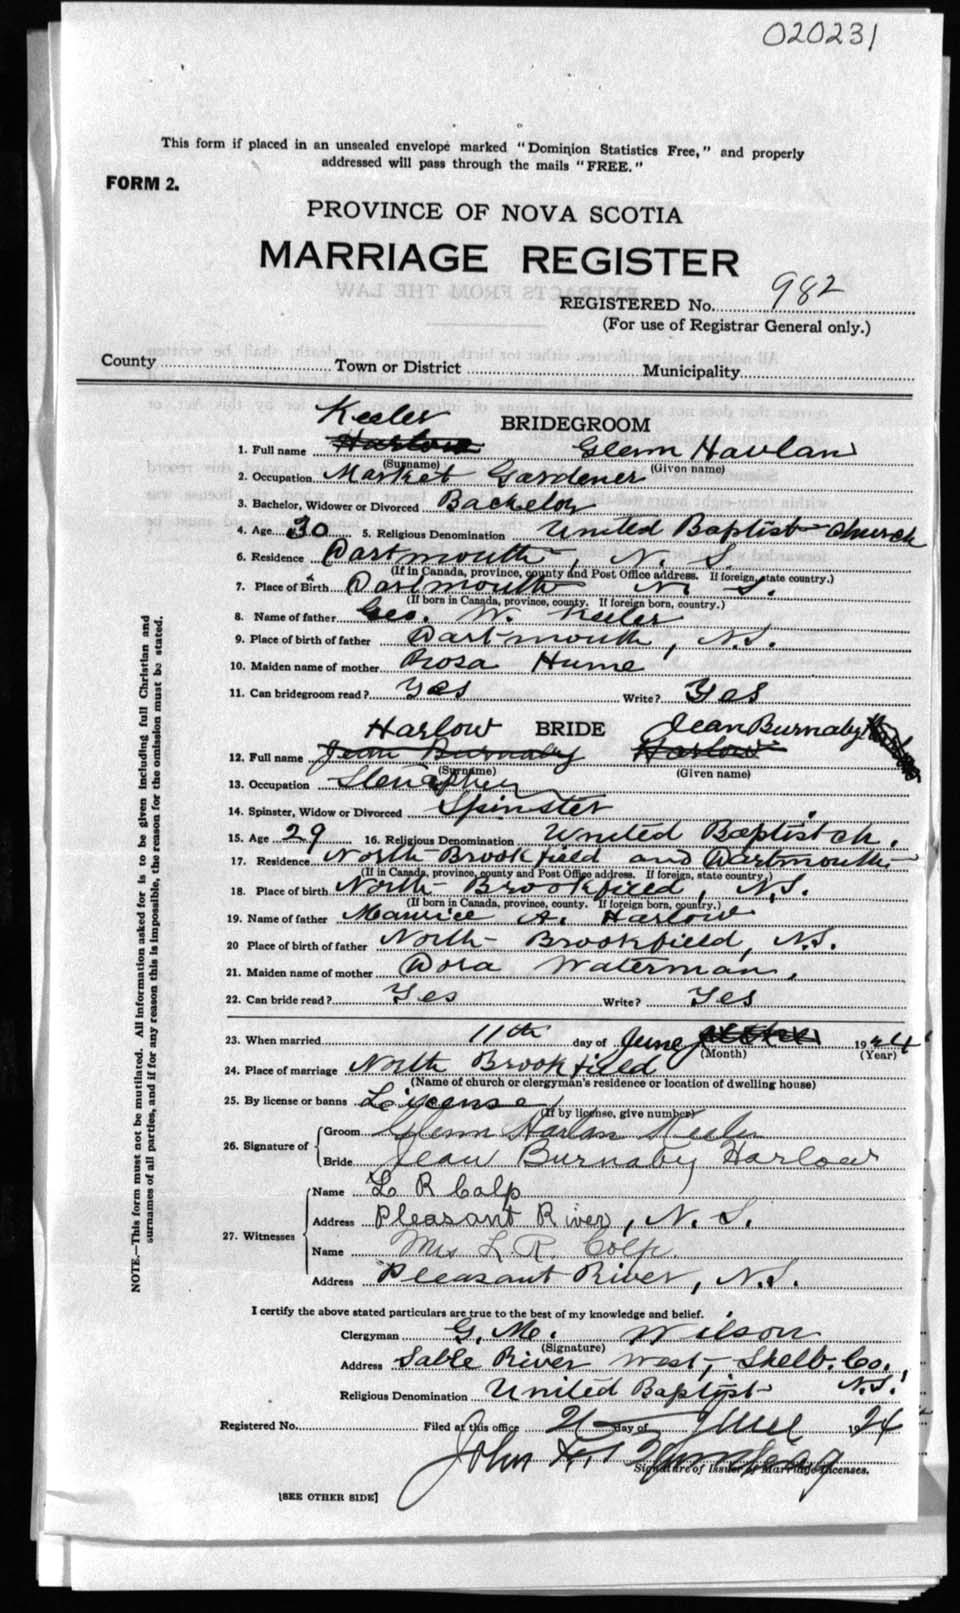 020231
This form if placed in an unsealed envelope marked "Dominion Statistics Free," and properly
addressed will pass through the mails "FREE."
FORM 2.
PROVINCE OF NOVA SCOTIA
MARRIAGE REGISTER
REGISTERED No. 982
(For use of Registrar General only.)
County Town or District Municipality
BRIDEGROOM
Keeler
1. Full name Harlow Glenn Havlan
(Surname) (Given name)
2. Occupation Market Gardener
3. Bachelor, Widower or Divorced Bachelor
4. Age 30 5. Religious Denomination United Baptist Church
6. Residence Dartmouth, N. S.
(If in Canada, province, county and Post Office address. If foreign, state country.)
7. Place of Birth Dartmouth N. S.
(If born in Canada, province, county. If foreign born, country.)
8. Name of father Geo. W. Keeler
9. Place of birth of father Dartmouth, N.S.
10. Maiden name of mother Rosa Hume
11. Can bridegroom read? Yes Write? Yes
Harlow BRIDE Jean Burnaby
12. Full name Jean Burnaby Harlow
(Surname) (Given name)
13. Occupation Stenographer
14. Spinster, Widow or Divorced Spinster
15. Age 29 16. Religious Denomination United Baptist ch.
17. Residence North Brookfield and Dartmouth
(If in Canada, province, county and Post Office address. If foreign, state country.)
18. Place of birth North Brookfield, N.S.
(If born in Canada, province, county. If foreign born, country.)
19. Name of father Maurice A. Harlow
20 Place of birth of father North Brookfield, N.S.
21. Maiden name of mother Dora Waterman.
22. Can bride read? Yes Write? Yes
23. When married 11th day of June 1924
(Month) (Year)
24. Place of marriage North Brookfield
(Name of church or clergyman's residence or location of dwelling house)
25. By license or banns License
(If by license, give number)
26. Signature of Groom Glenn Harlan Keeler
Bride Jean Burnaby Harlow
27. Witnesses
Name L R Colp
Address Pleasant River, N. S.
Name Mrs L. R. Colp.
Address Pleasant River, N.S.
I certify the above stated particulars are true to the best of my knowledge and belief.
Clergyman G. Mc. Wilson
(Signature)
Address Sable River West, Shelb. Co., N.S.
Religious Denomination United Baptist
Registered No. Filed at this office 21 day of June 1924
John
Signature of Issuer of Marriage Licenses.
[SEE OTHER SIDE]
NOTE.—This form must not be mutilated. All information asked for is to be given including full Christian and
surnames of all parties, and if for any reason this is impossible, the reason for the omission must be stated.